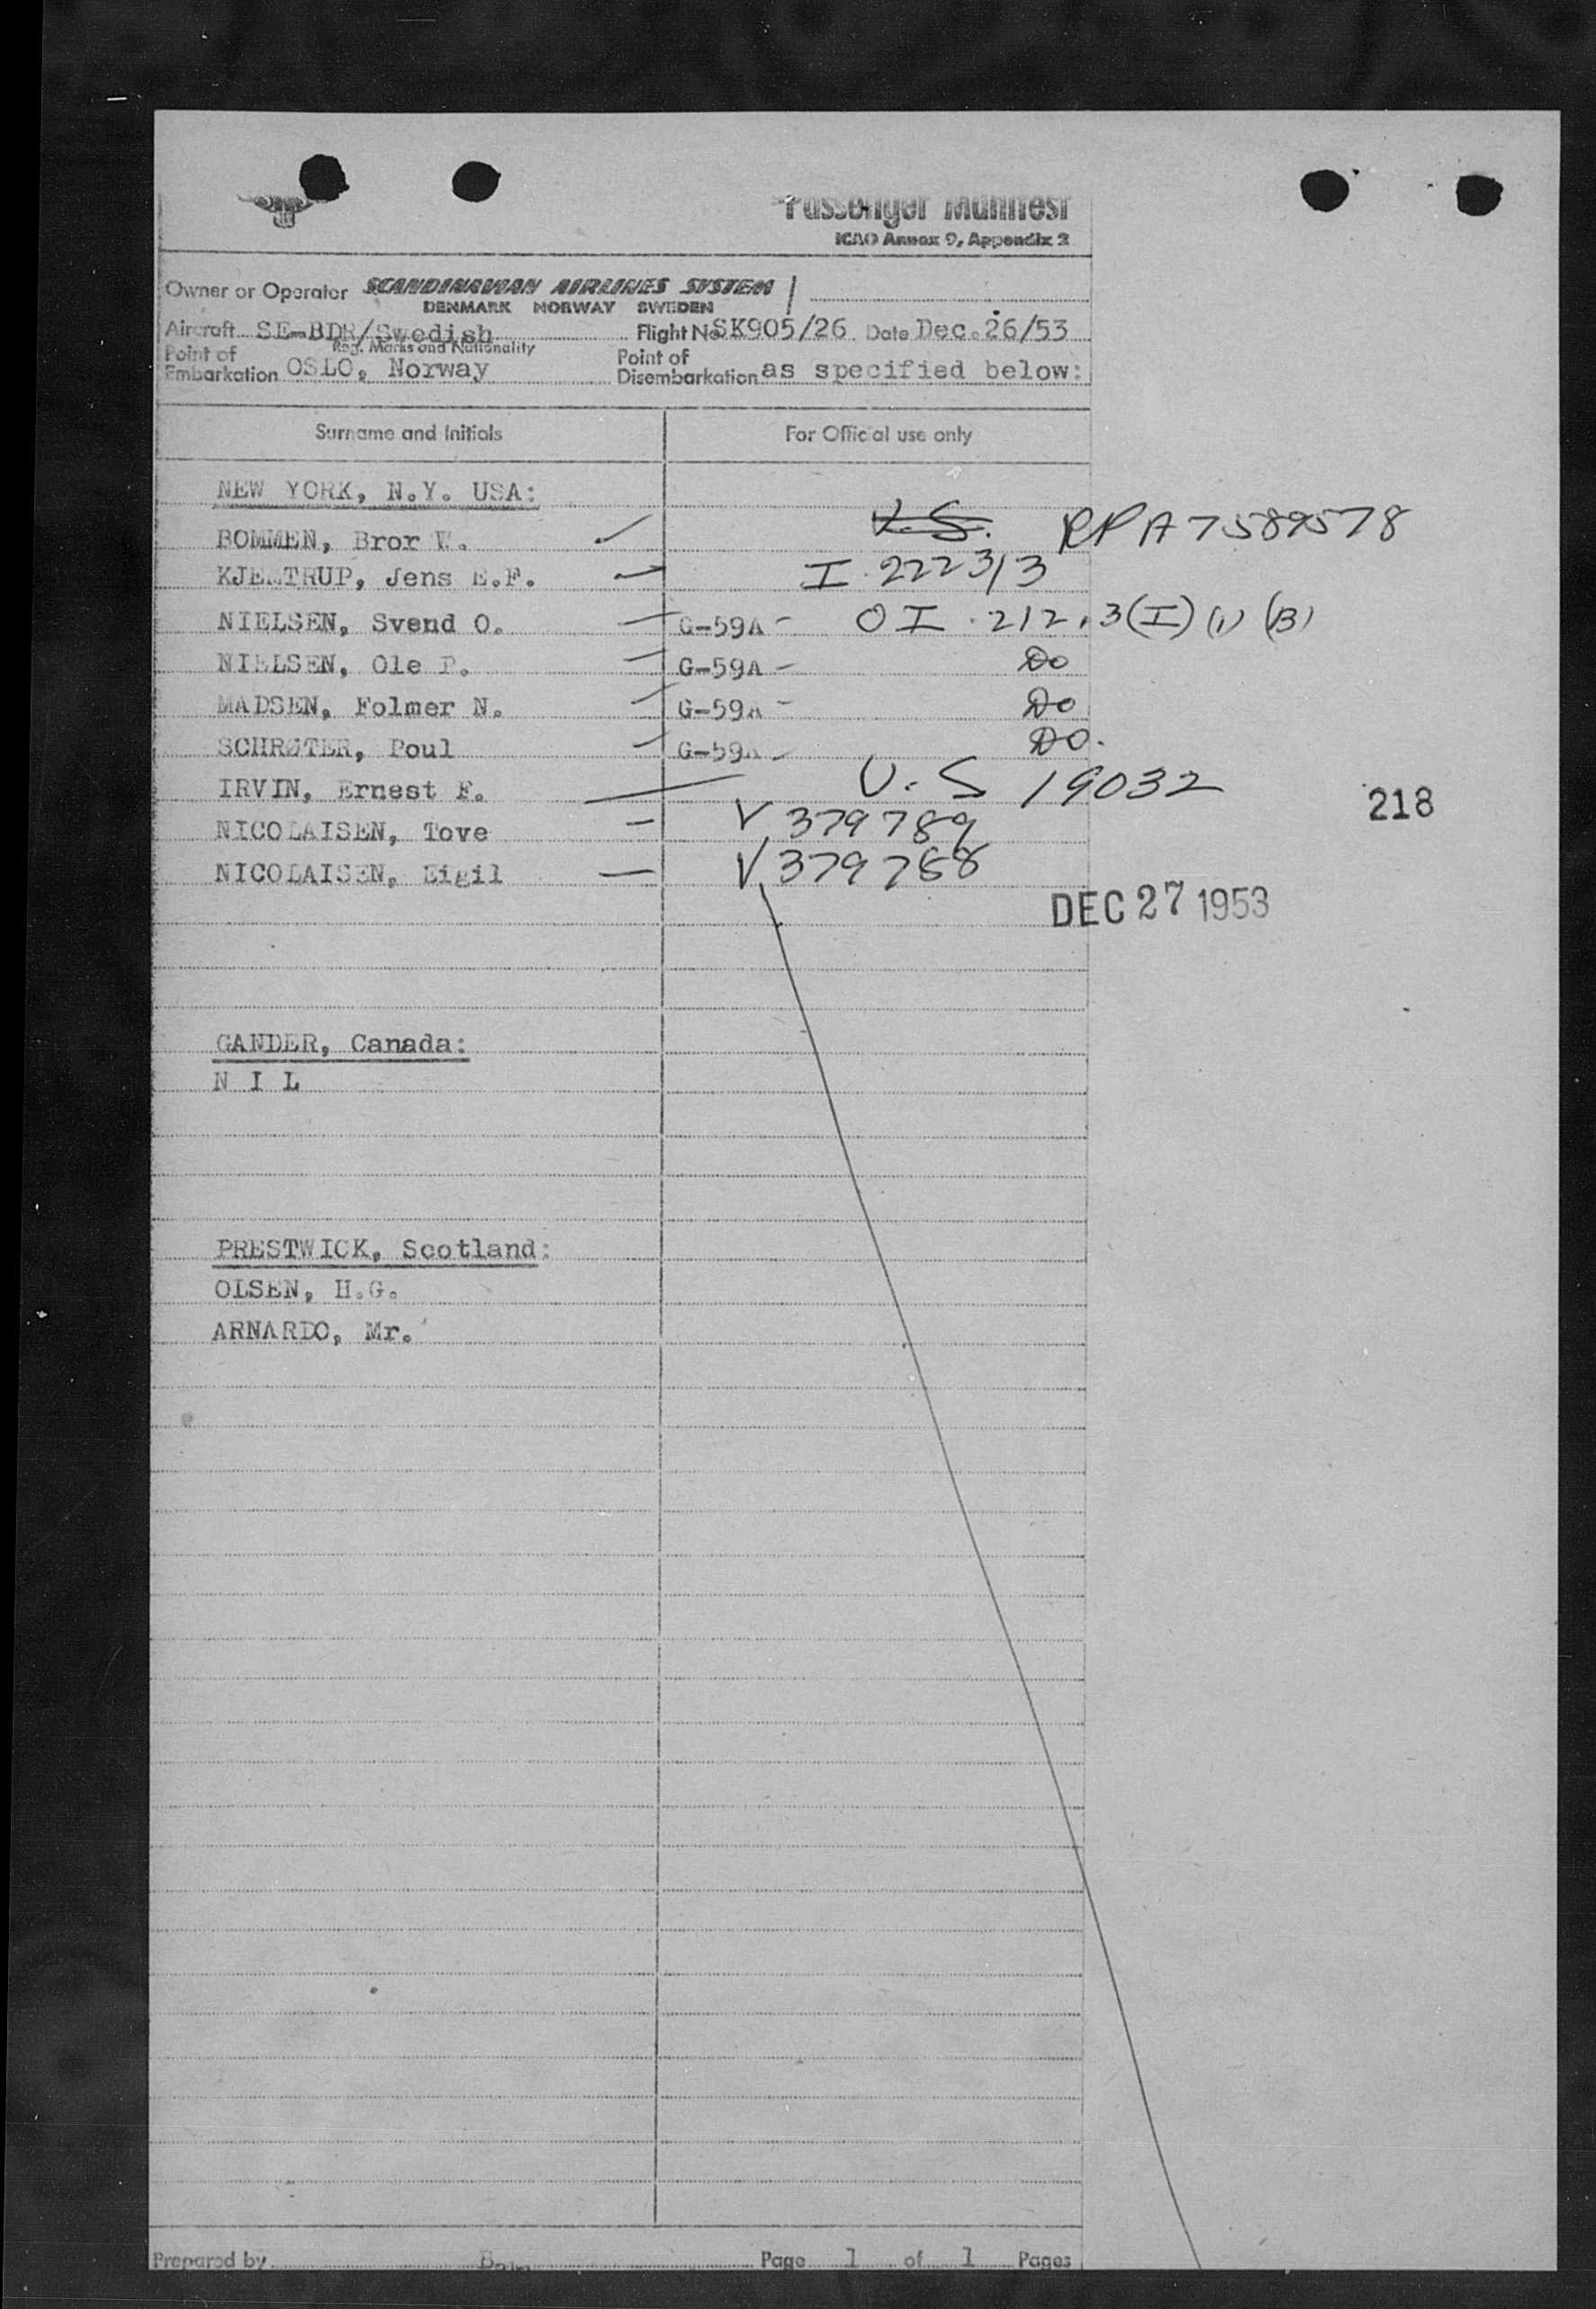 Passenger Manifest
ICAO Annex 9, Appendix 2
Owner or Operator SCANDINAVIAN AIRLINES SYSTEM
DENMARK NORWAY SWEDEN
Aircraft SE-BDR/Swedish Flight No SK905/26 Date Dec. 26/53
Reg. Marks and Nationality
Point of Embarkation OSLO, Norway Point of Disembarkation as specified below:
Surname and Initials For Official use only
NEW YORK, N.Y. USA:
BOMMEN, Bror W. U.S. RPA 7589578
Jens E.F. I 222313
NIELSEN, Svend O. G-59A - OI.212.3(I)(1)(B)
NIELSEN, Ole P. G-59A - Do
MADSEN, Folmer N. G-59A - Do
SCHRØTER, Poul G-59A - DO.
IRVIN, Ernest F. U.S 19032
218
NICOLAISEN, Tove V 379789
NICOLAISEN, Eigil V 379788
DEC 27 1953
GANDER, Canada:
N I L
PRESTWICK, Scotland:
OLSEN, H.G.
ARNARDO, Mr.
Prepared by Page 1 of 1 Pages